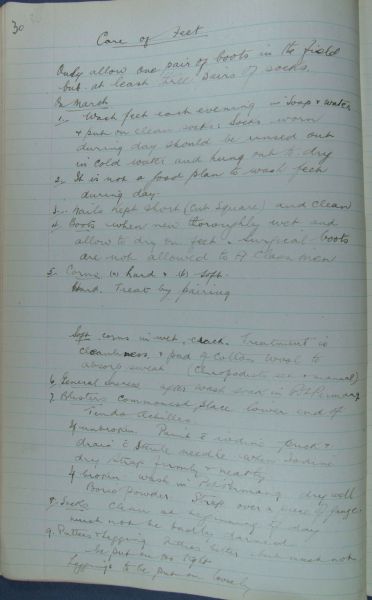 30
Care of Feet
Only allow one pair of boots in the field
but at least three pairs of socks.
On March
1. Wash feet each evening in soap & water
& put on clean socks. Socks worn
during day should be rinsed out
in cold water and hung out to dry
2. It is not a good plan to wash feet
during day.
3. Nails kept short (Cut Square) and clean
4. Boots when new thoroughly wet and
allow to dry on feet. Surgical boots
are not allowed to A Class men
5. Corns (a) hard & (b) soft.
Hard. Treat by pairing
Soft corns in wet. Treatment is
cleanliness & pad of cotton wool to
absorb sweat (Chiropodists set & manual)
6. General after wash soak in Pot Permang
7. Blisters commonest place lower end of
Tendo Achilles.
If unbroken Paint c iodine prick &
drain c sterile needle when Iodine
dry strap firmly & neatly
If broken wash in Pot Permang dry well
Boric powder. Strap over a piece of gauze
8. Socks clean at beginning of day
must not be badly darned
9. Putties & legging putties better but must not
be put on too tight
leggings to be put on loosely